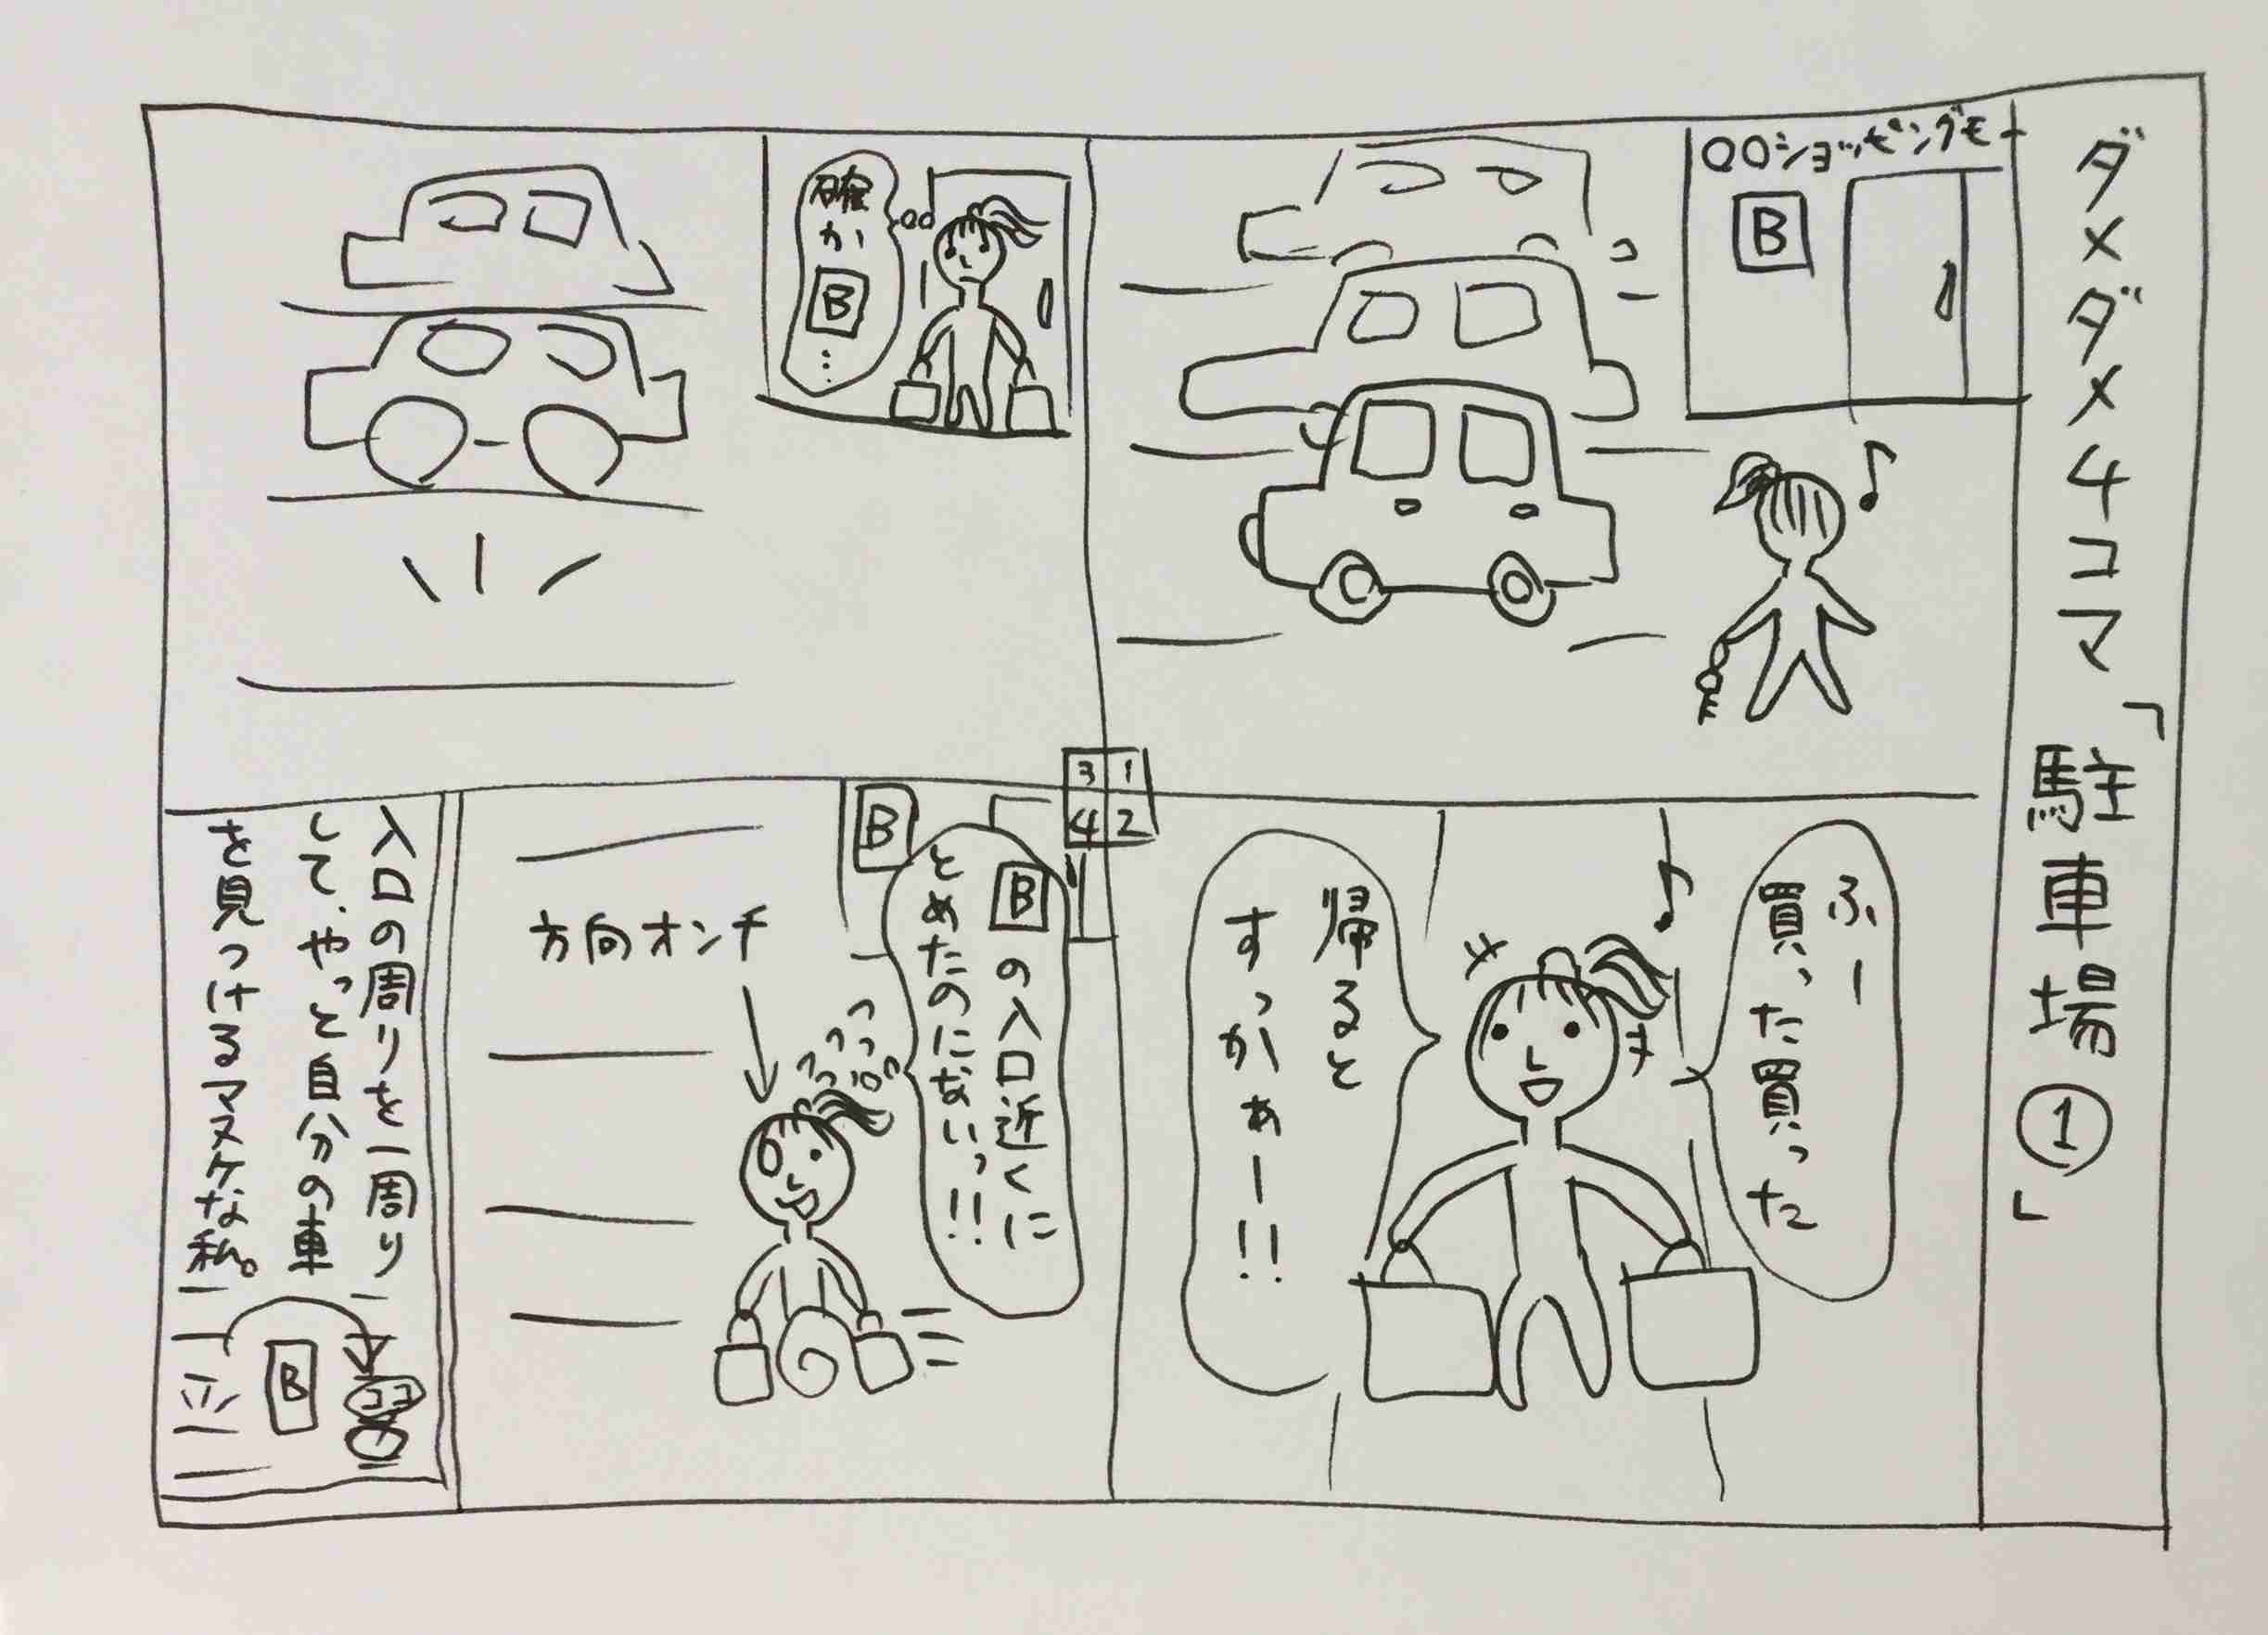 ダメダメ4コマ「駐車場①」
〇〇ショッピングモー
B
1
2
3
4
ふー
買った買った
帰ると
すっかぁー!!
確か
B
…
B
Bの入口近くに
とめたのにないっ!!
方向オンチ
入口の周りを一周り
して、やっと自分の車
を見つけるマヌケな私。
B
ココ